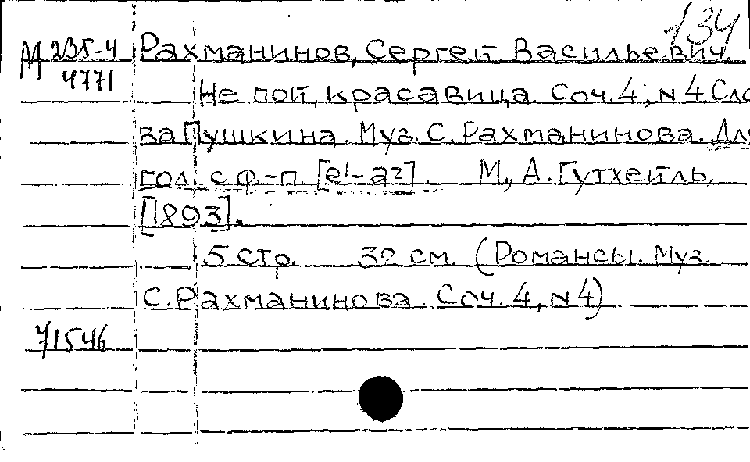 134
М 235-4 Рахманинов, Сергей Васильевич.
4771
Не пой, красавица. Соч. 4, N 4. Сло
ва Пушкина. Муз. С. Рахманинова. Для
гол. с ф.-п. [e¹-a²]. М., А. Гутхейль,
[1893].
5 стр. 32 см. (Романсы. Муз.
С. Рахманинова. Соч. 4, N 4)
71546